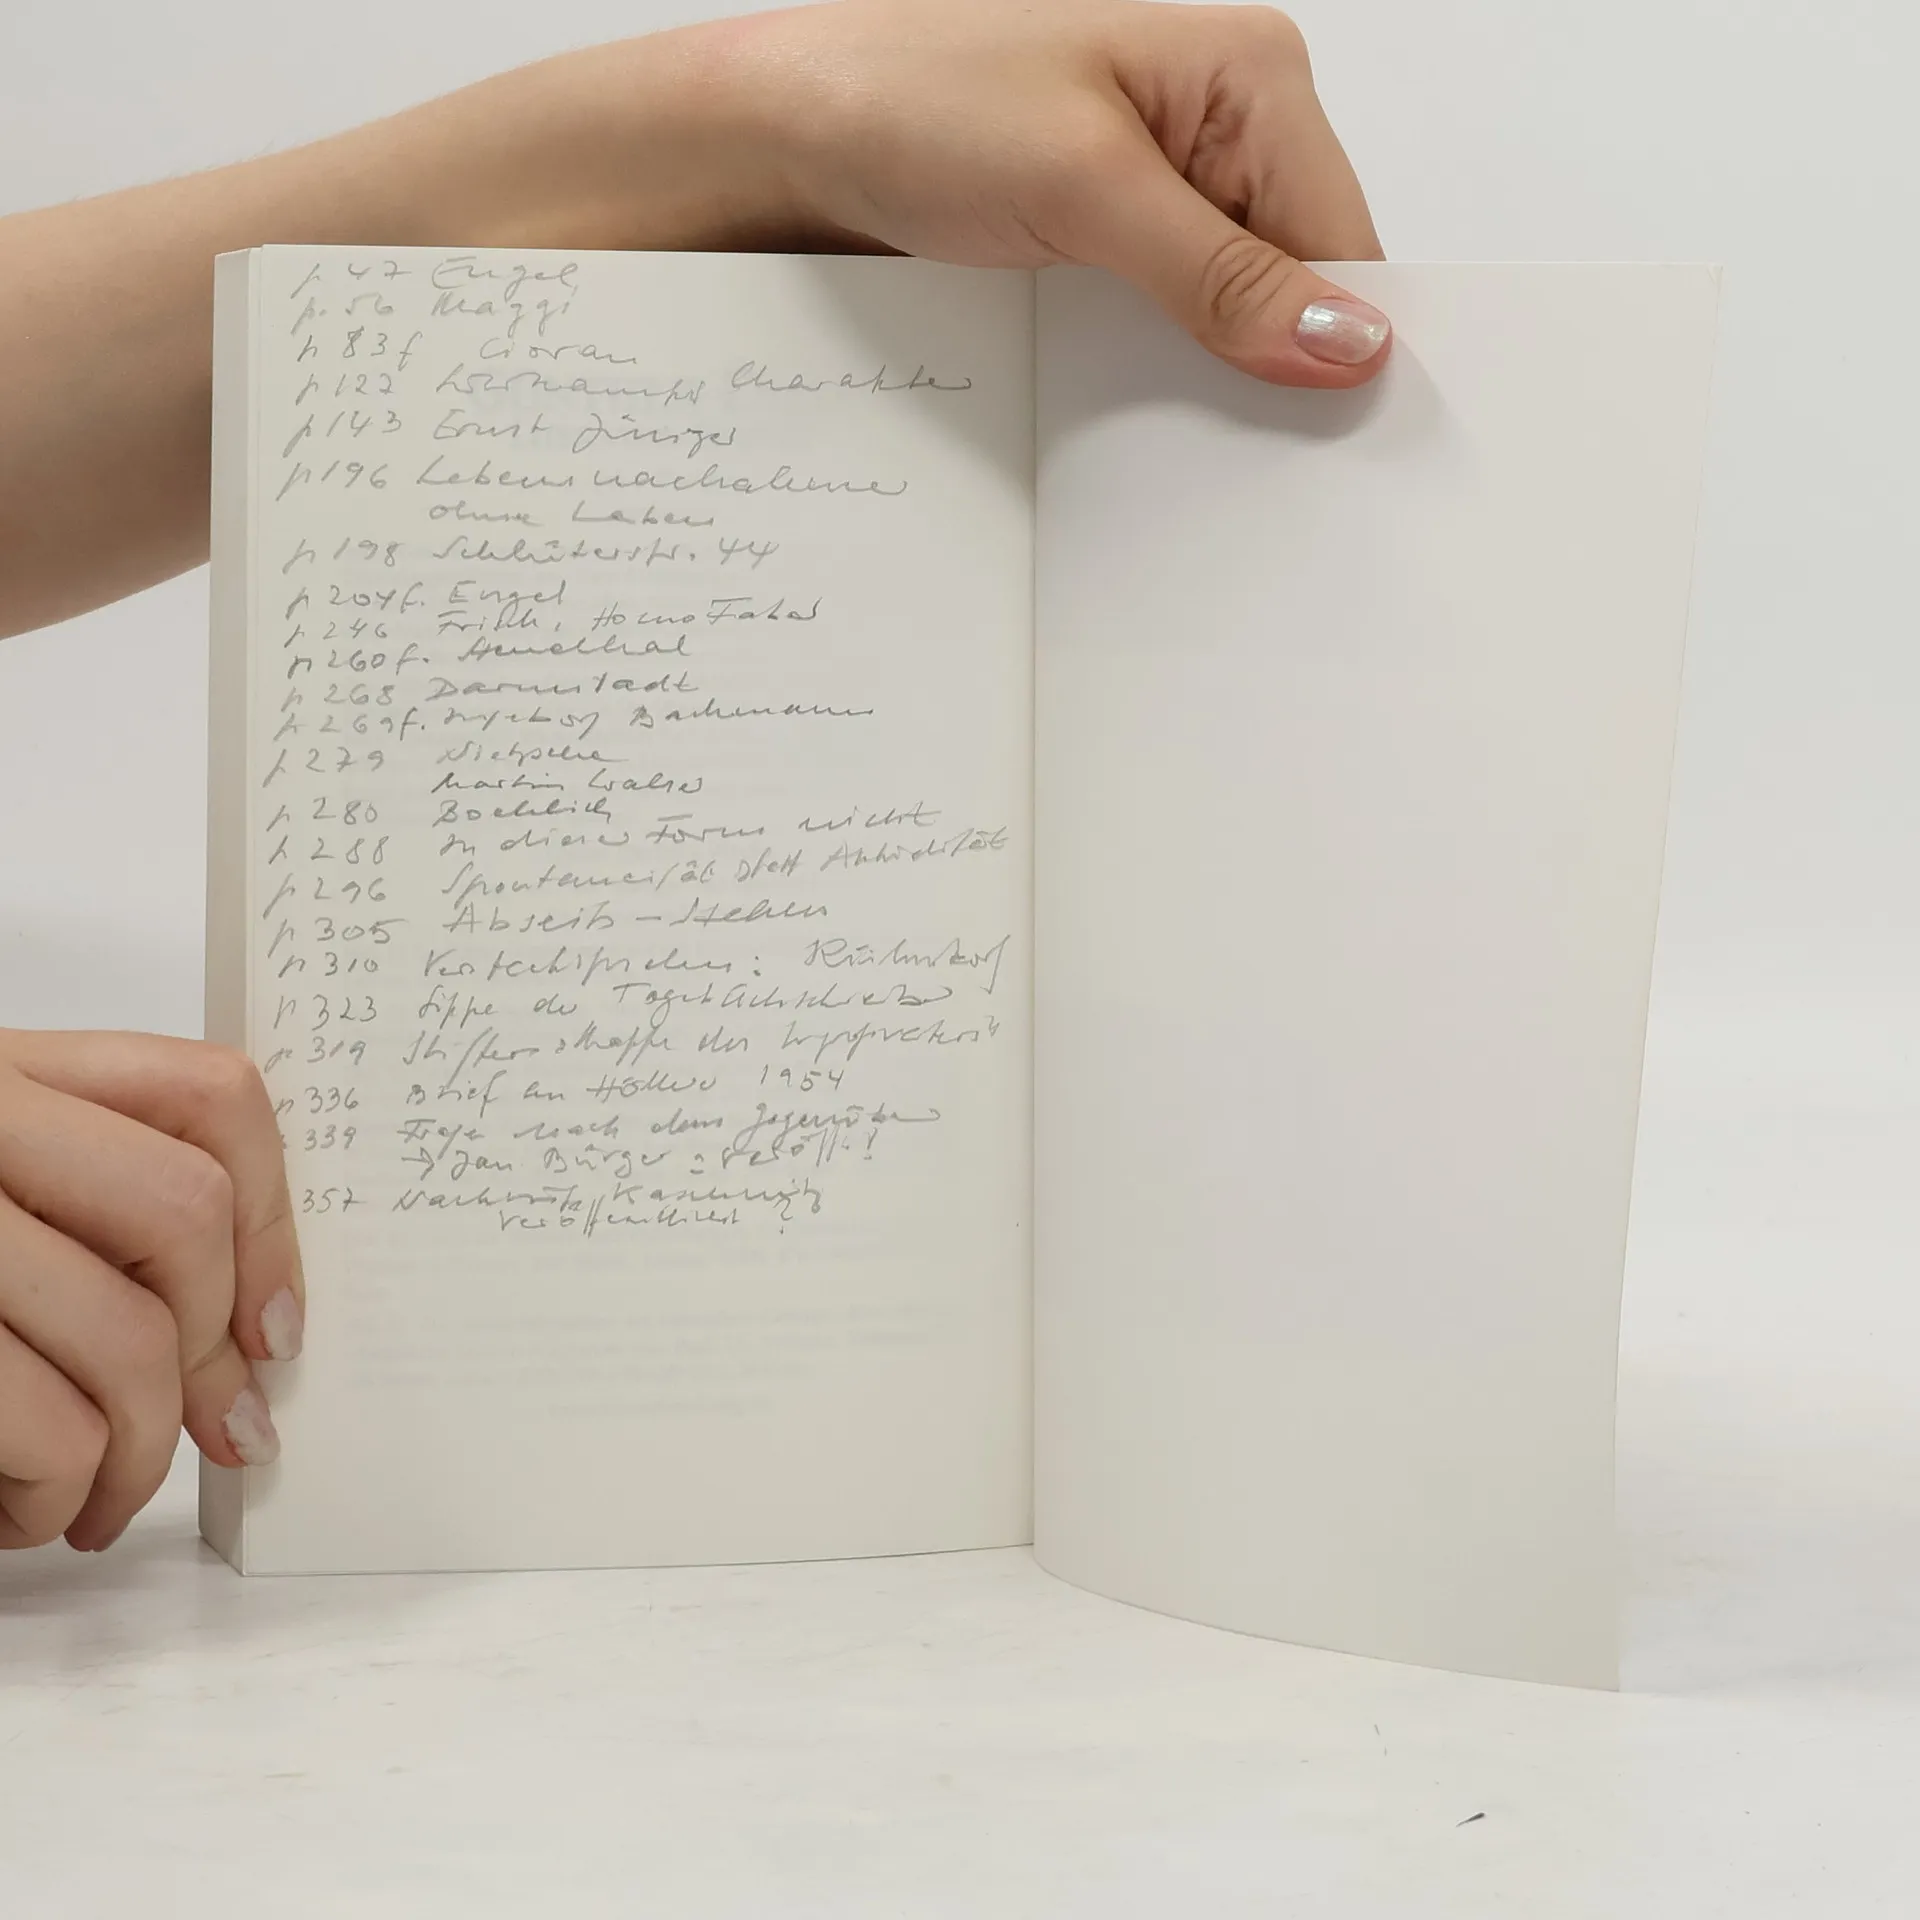 p 47 Engel,
p. 56 Maggi
p 83f Cioran
p 127 Charakter
p 143 Ernst Jünger
p 196 Lebensnachahme
ohne Leben
p 198 Schlüterstr. 44
p 204f. Engel
p 246 Frisch, Homo Faber
p 260f. Stendhal
p 268 Darmstadt
p 269f. Ingeborg Bachmann
p 279 Nietzsche
Martin Walser
p 280 Boehlich
p 288 In dieser Form nicht
p 296 Spontaneität statt
p 305 Abseits - Stehen
p 310 : Rühmkorf
p 323 Sippe der Tagebuchschreiber
p 319 der
p 336 Brief an Höllerer 1954
339 Frage nach dem Gegenüber
→ Jan Bürger : veröff.?
357 Kaschnitz
veröffentlicht ?